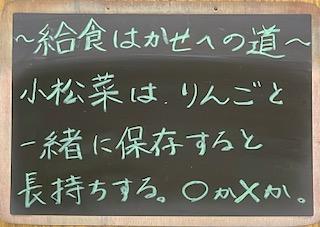 ～給食はかせへの道～
小松菜は、りんごと
一緒に保存すると
長持ちする。○か×か。